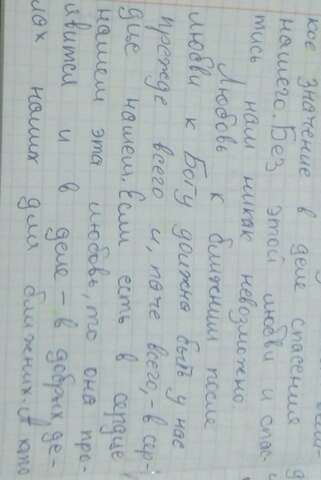 кое значение в деле спасения
нашего. Без этой любви и спас-
тись нам никак невозможно
Любовь к ближним после
любви к Богу должна быть у нас
прежде всего и, паче всего, - в сер-
дце нашем. Если есть в сердце
нашем эта любовь, то она про-
явится и в деле - в добрых де-
лах наших для ближних. И